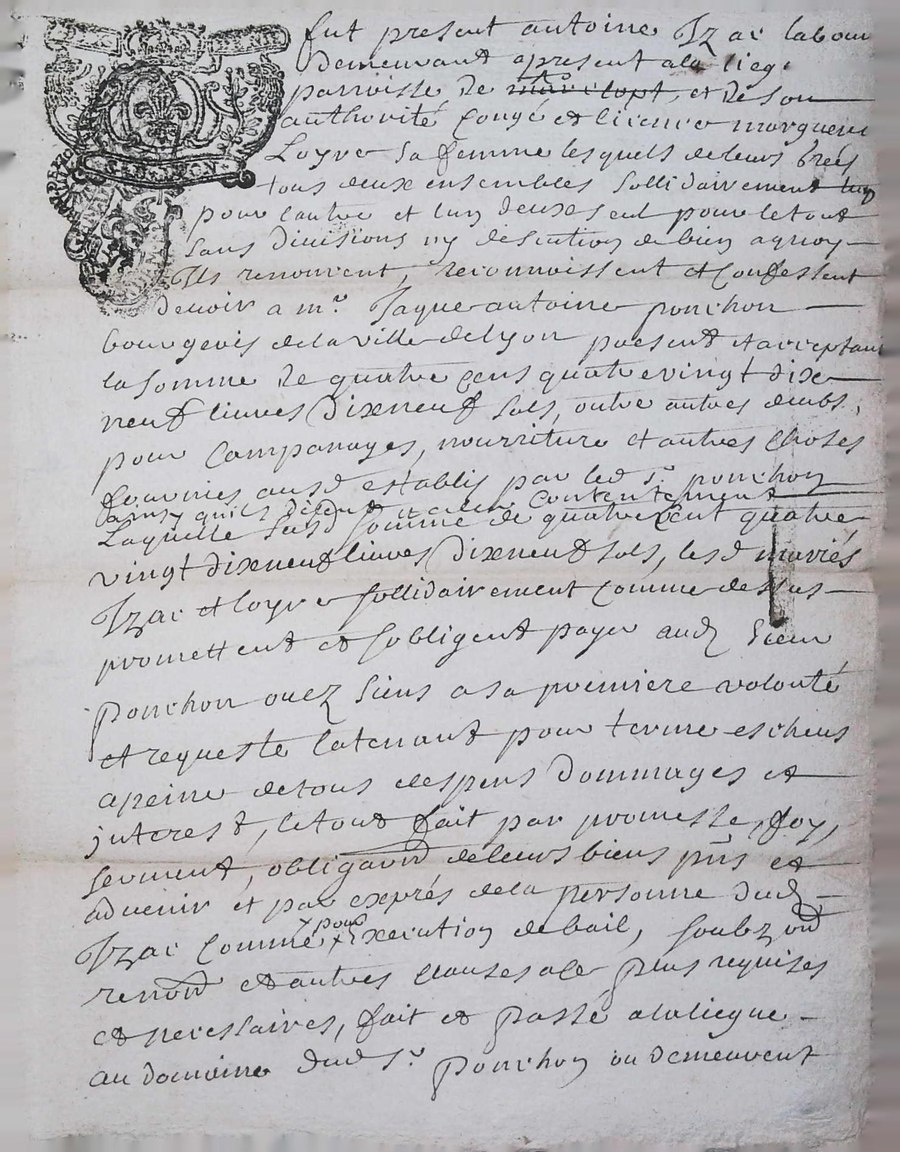 fut present antoine Izac labour
demeurant apresent ala liegue
parroisse de et de son
authorité congé et licence marguerite
Loyre sa femme lesquels de leurs grés
tous deux ensembles sollidairement lun
pour lautre et lun deux seul pour le tout
sans divisions ny de biens aquoy
Ils renoncent, reconnoissent et confessent
devoir a mr Jaque antoine ponchon
bourgeois de la ville de lyon present et acceptant
la somme de quatre cens quatrevingt dix
neuf livres dixneuf sols, outre autres debts,
pour Campanages, nourriture et autres choses
fournies ausd establis par led sr ponchon
ainsy quils disent et a leur contentement
Laquelle susd somme de quatre cent quatre
vingt dixneuf livres dixneuf sols, lesd mariés
Izac et loyre sollidairement comme dessus
promettent et sobligent payer aud sieur
ponchon ou ez siens a sa premiere volonté
et requeste la tenant pour terme escheus
apeine de tous despens dommages et
interest, le tout fait par promesse, foy,
serment, obligaond de leurs biens pnts et
advenir et par exprés de la personne dud
Izac comme pour execution de bail, soubz
renond et autres clauses a ce plus requises
et necessaires, fait et passé a la liegue
au domaine dud sr ponchon ou demeurent